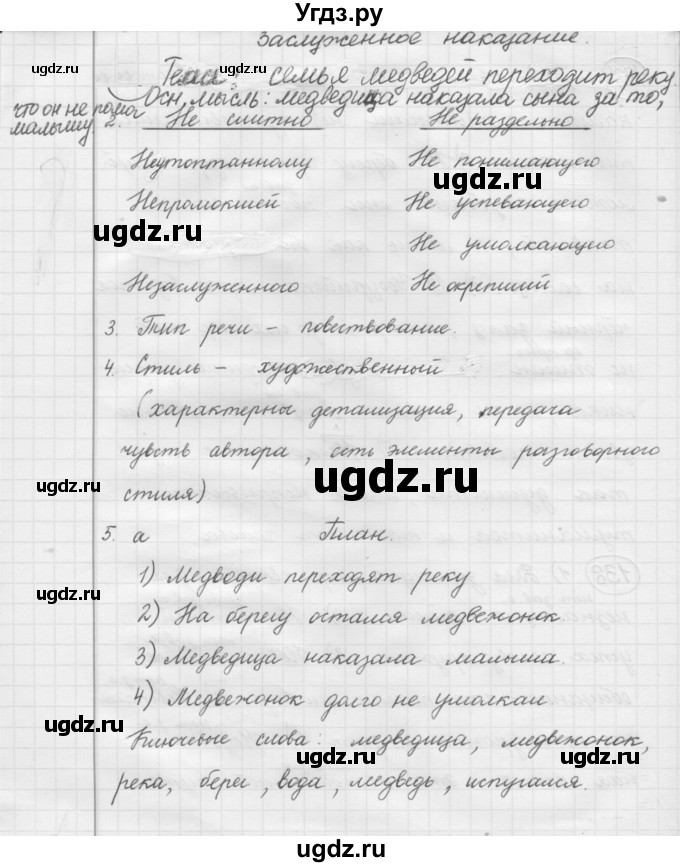 Угдз.ру
Заслуженное наказание.
Тема: семья медведей переходит реку.
Осн. мысль: медведица наказала сына за то,
что он не помог
малышу
2. Не слитно Не раздельно
Неутоптанному Не понимающего
ugdz.ru
Непромокшей Не успевающего
ugdz.ru
Не умолкающего
Незаслуженного Не окрепший
ugdz.ru
3. Тип речи – повествование.
4. Стиль – художественный
(характерны детализация, передача
чувств автора, есть элементы разговорного
ugdz.ru
стиля)
ugdz.ru
5. а План.
1) Медводи переходят реку
ugdz.ru
2) На берегу остался медвежонок
3) Медведица наказала малыша.
4) Медвежонок долго не умолкал
ugdz.ru
Ключевые слова: медведица, медвежонок,
река, берег, вода, медведь, испугался.
ugdz.ru
Решения есть!